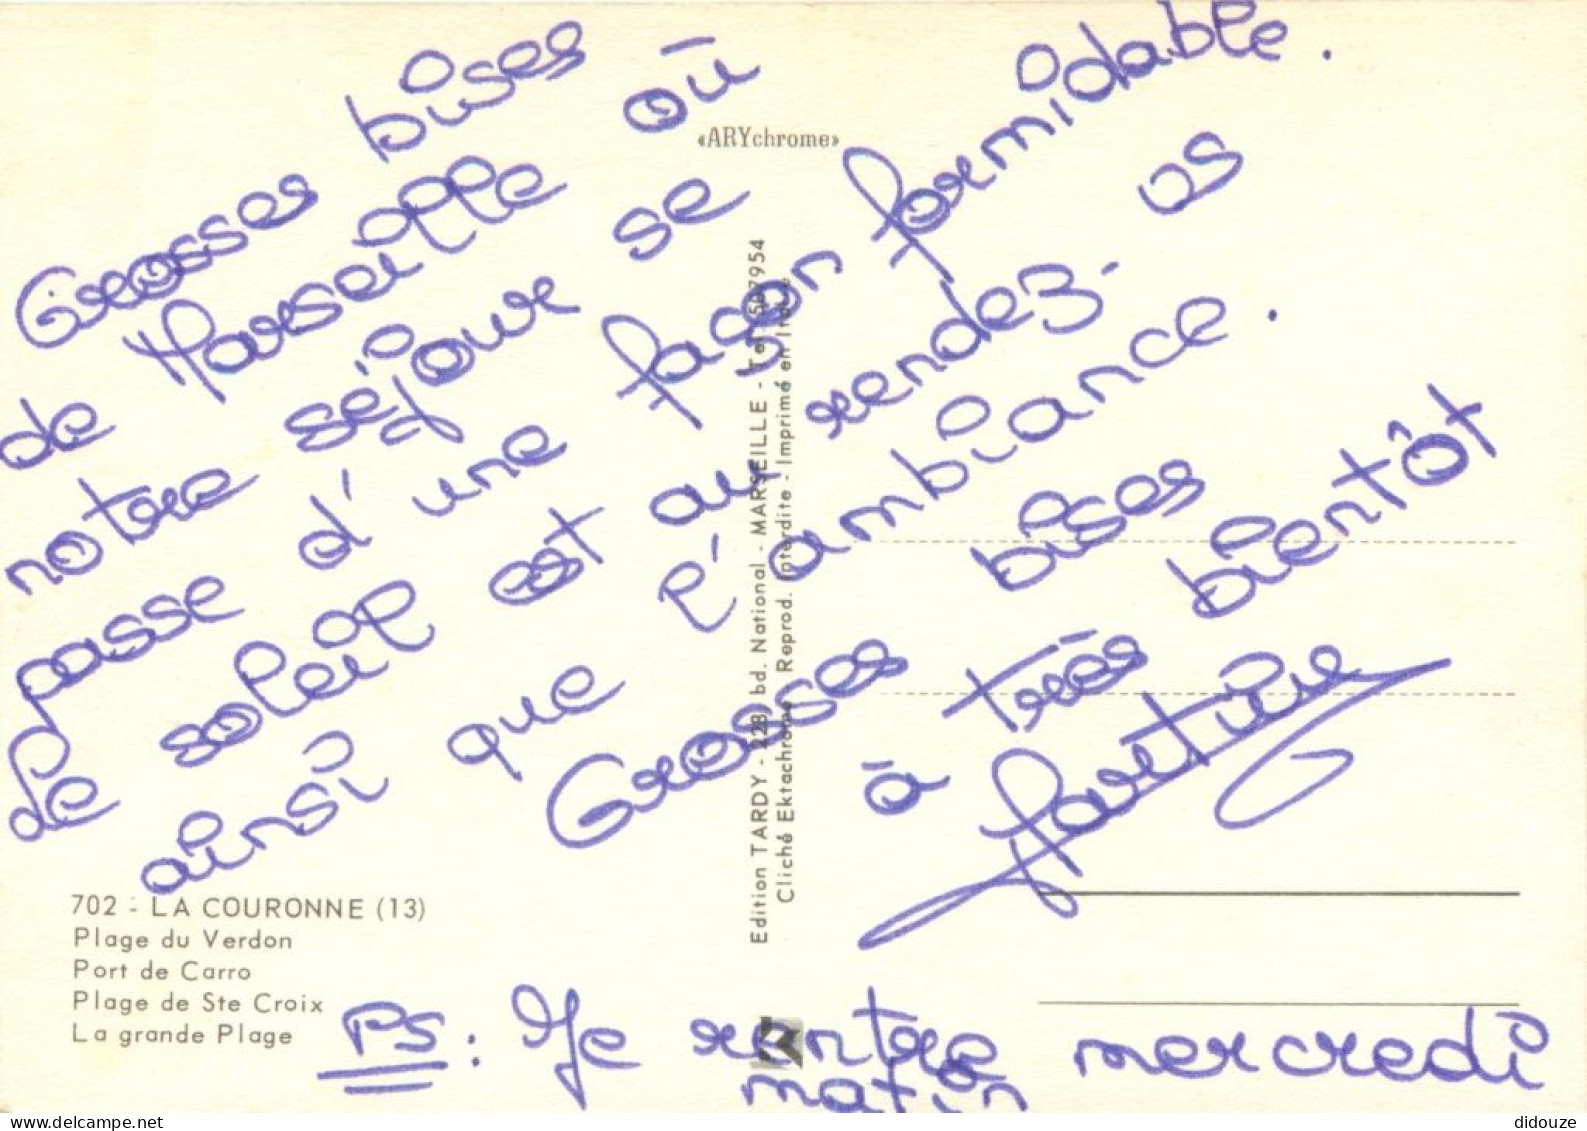 Grosses bises
de Marseille où
notre séjour se
passe d'une façon formidable.
Le soleil est au rendez-vs
ainsi que l'ambiance.
Grosses bises
à très bientôt
Martine
PS: Je rentre mercredi
matin
«ARYchrome»
Edition TARDY - 228, bd. National - MARSEILLE - Tel. 507954
Cliché Ektachrome Reprod. Interdite - Imprimé en Italie
702 - LA COURONNE (13)
Plage du Verdon
Port de Carro
Plage de Ste Croix
La grande Plage
delcampe.net
didouze